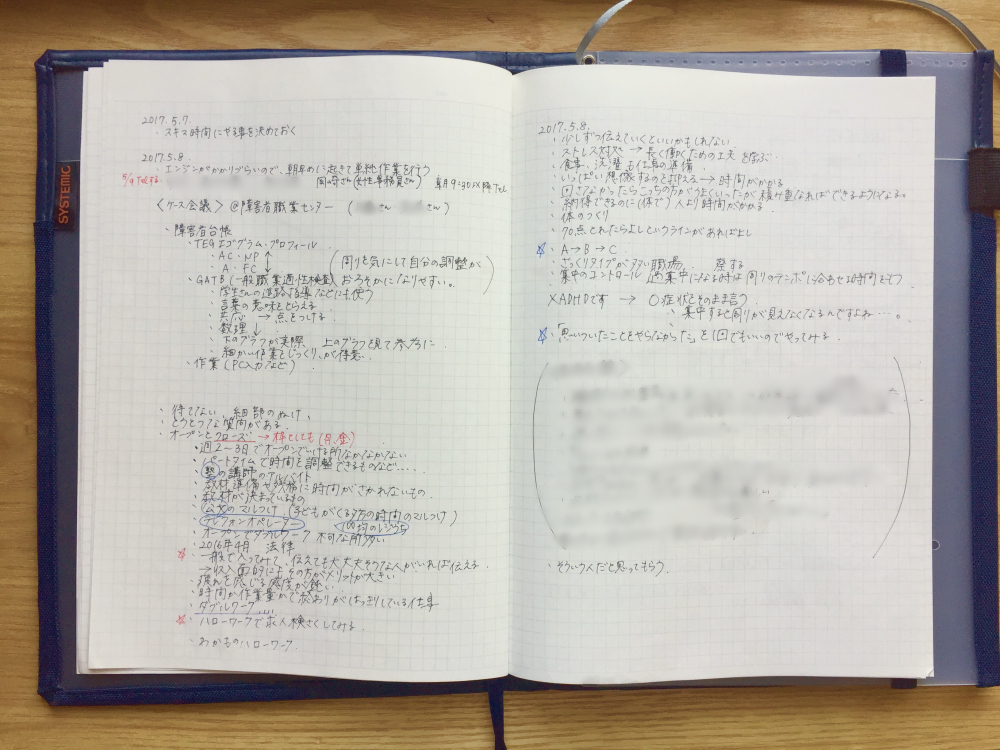 SYSTEMIC
2017.5.7.
・スキマ時間にやる事を決めておく
2017.5.8.
・エンジンがかかりづらいので、朝早めに起きて単純作業を行う
5/9 Telする
さん(女性、事務員さん) 朝9:30以降Tel
〈ケース会議〉@障害者職業センター ( さん さん)
・障害者台帳
・TEGエゴグラム・プロフィール
・AC・NP↑
・A・FC↓
(周りを気にして自分の調整がおろそかになりやすい。)
・GATB(一般職業適性検査)
・学生さんの進路指導などにも使う
・言葉の意味をとらえる
・共応 →点をつける
・数理↓
・下のグラフが実際、上のグラフを見て参考に
・細かい作業をじっくり、が得意
・作業(PC入力など)
・待てない、細部のぬけ、
・とうとつな質問がある。
・オープンとクローズ →枠としても(月、金)
・週2〜3日でオープンでいける所なかなかない
・パートタイムで時間を調整できるものなど.....
・塾の講師のアルバイト
・教材準備や に時間がさかれないもの
・教材が決まっているもの
・公文のマルつけ(子どもがくる夕方の時間のマルつけ)
・テレフォンオペレーター
のレジうち
・オープンでダブルワーク 不可な所多い
・2016年4月 法律
☆・一般で入ってみて、伝えても大丈夫そうな人がいれば伝える
→収入面的には その方がメリットが大きい
・疲れを感じる感度が鈍い
・時間か作業量かで終わりがはっきりしている仕事
・ダブルワーク....
☆・ハローワークで求人検さくしてみる。
・わかものハローワーク
2017.5.8.
・少しずつ伝えていくといいかもしれない
・ストレス対処 →長く働くための工夫 を学ぶ
・食事、洗濯も仕事の準備
・いっぱい想像するのを抑える→時間がかかる
・回さなかったらこっちの方がうまくいったが積み重なればできるようになる。
・納得できるのに(体で)人より時間がかかる
・体のつくり
・70点とれたらよしというラインがあれば よし
☆・A→B→C
・ざっくりタイプが多い職場、 察する
・集中のコントロール 過集中になる時は周りのテンポに合わせる時間をもつ
×ADHDです → ○症状をそのまま言う
、集中すると周りが見えなくなるんですよね…。
☆・「思いついたことをやらなかった」を1回でもいいのでやってみる
・そういう人だと思ってもらう